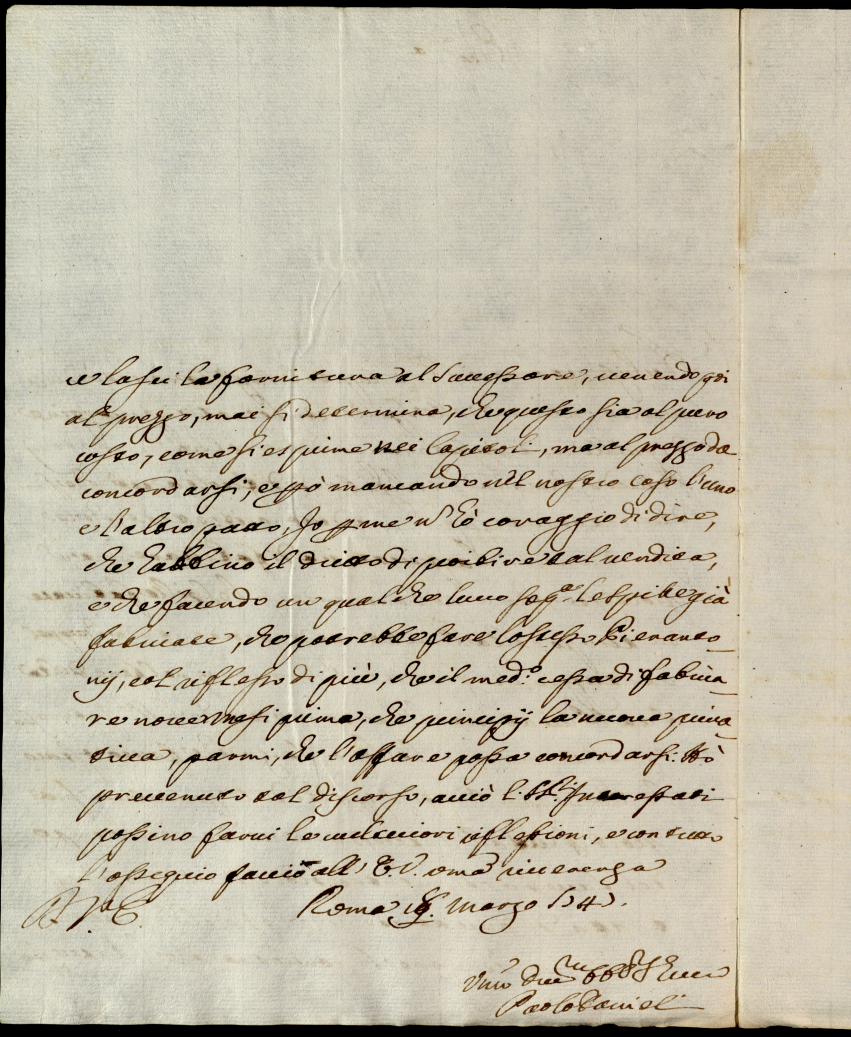 e lasci la fornitura al Successore, venendo poi
al prezzo, mai si determina, che questo sia al puro
costo, come si esprime nei Capitoli, ma al prezzo da
concordarsi, e però mancando nel nostro caso l'uno
e l'altro patto, Io p me nō hò coraggio di dire,
che habbino il dritto di proibire tal vendita,
e che facendo un qualche lucro sopra le spille già
fabricate, che potrebbe fare lo stesso Pieranto¬
nij, col riflesso di più, che il med.º cessa di fabrica¬
re nove mesi prima, che principij la nuova priva¬
tiva, parmi, che l'affare possa concordarsi. Hò
prevenuto tal discorso, acciò li SS.ri Interessati
possino farvi le ulteriori riflessioni, e con tutto
l'ossequio faccio all' E.V. riverenza
Roma marzo
Paolo Danieli